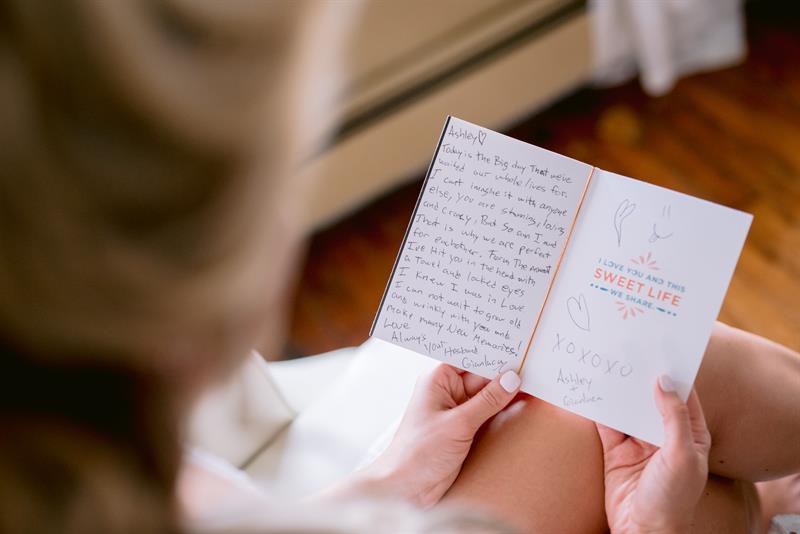 Ashley
Today is the Big day That we've
waited our whole lives for.
I cant imagine it with anyone
else, you are stunning, loving
and crazy, But So am I and
That is why we are perfect
for eachother. From The moment
I've Hit you in the head with
a Towel and locked eyes
I knew I was in Love
I can not wait to grow old
and wrinkly with you and
make many New Memories!
Love
Always
Your Husband
Gianluca
I LOVE YOU AND THIS
SWEET LIFE
WE SHARE.
XOXOXO
Ashley
+
Gianluca